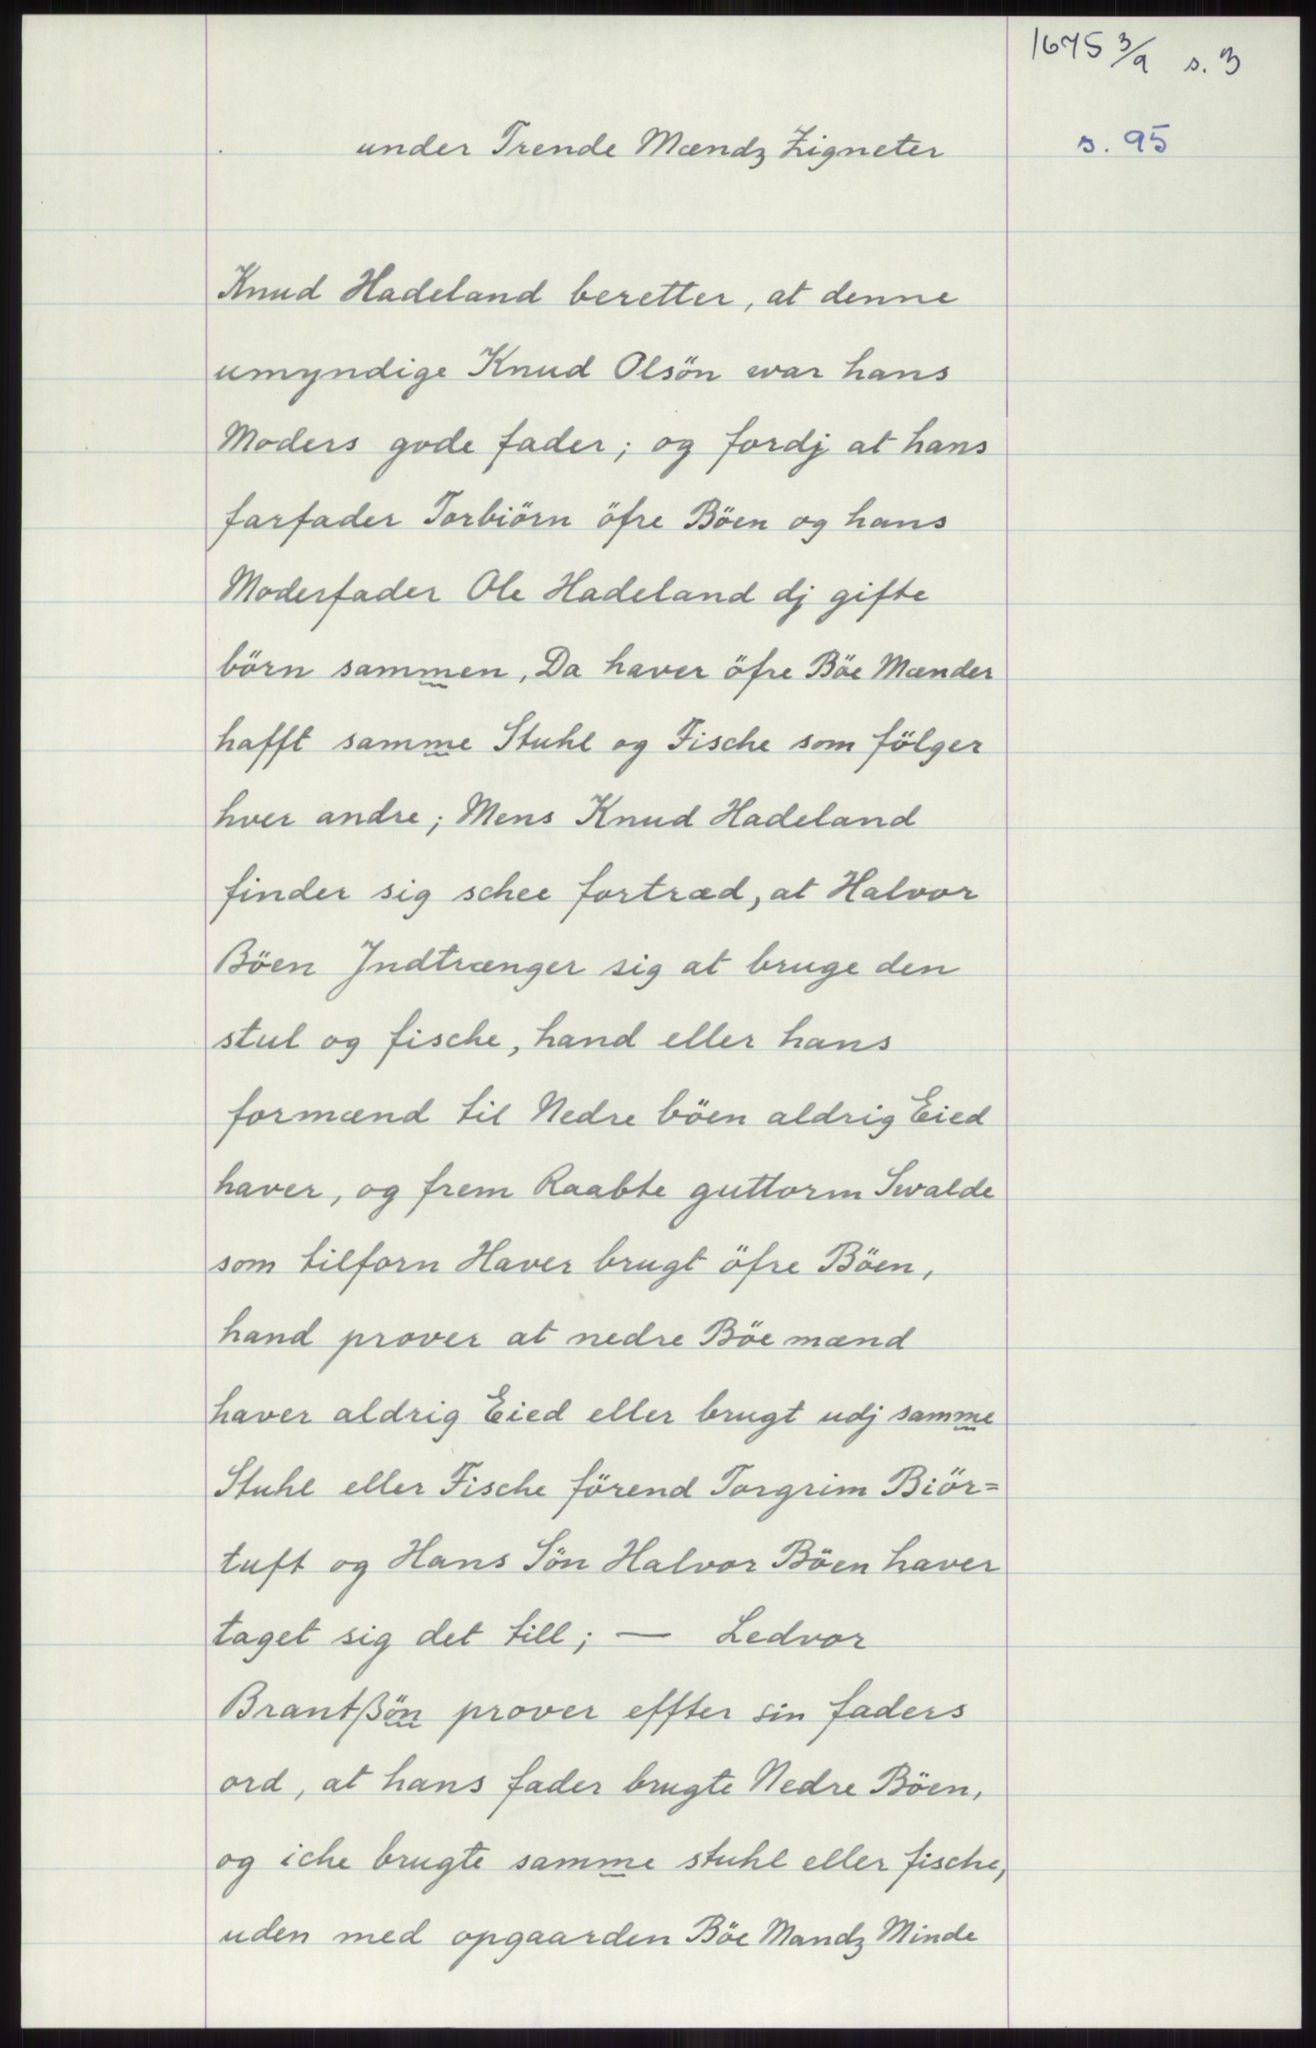 1675 3/9 s. 3
under Trende Mændz Zigneter s. 95
Knud Hadeland beretter, at denne
umyndige Knud Olsön war hans
Moders gode fader; og fordj at hans
farfader Torbiörn öfre Böen og hans
Moderfader Ole Hadeland dj gifte
börn sammen, Da haver öfre Böe Mænder
hafft samme Stuhl og Fische som fölger
hver andre; Mens Knud Hadeland
finder sig schee fortræd, at Halvor
Böen Jndtrænger sig at bruge den
stul og fische, hand eller hans
formænd til Nedre böen aldrig Eied
haver, og frem Raabte guttorm Swalde
som tilforn Haver brugt öfre Böen,
hand prover at nedre Böe mænd
haver aldrig Eied eller brugt udj samme
Stuhl eller Fische förend Torgrim Biör=
tuft og Hans Sön Halvor Böen haver
taget sig det till; — Ledvor
Brantßön prover effter sin faders
ord, at hans fader brugte Nedre Böen,
og iche brugte samme stuhl eller fische,
uden med opgaarden Böe Mandz Minde